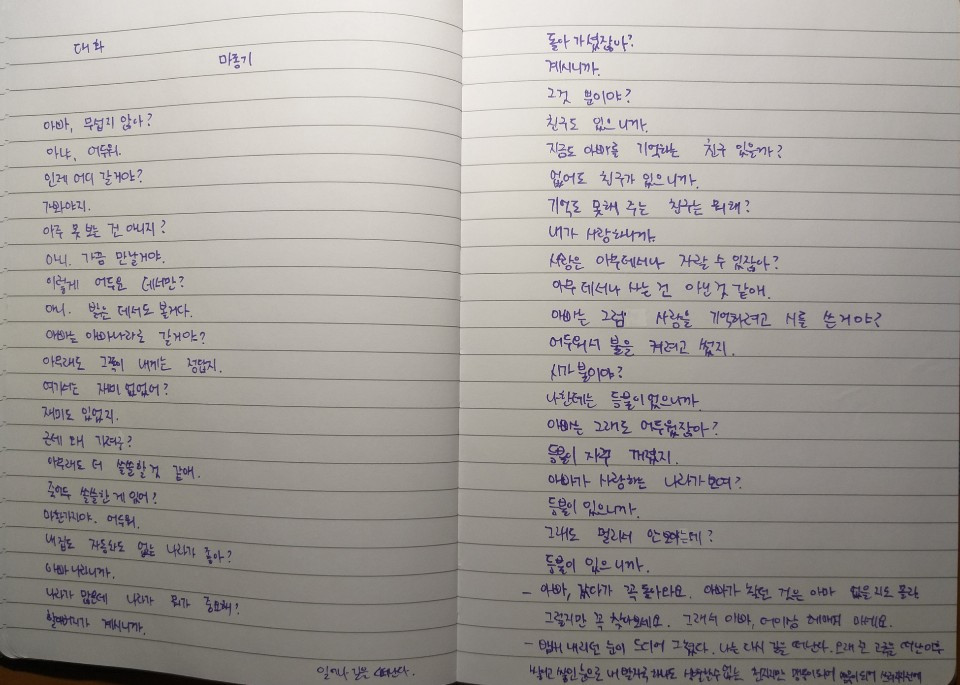 대화
마종기
아빠, 무섭지 않아?
아냐, 어두워.
인제 어디 갈거야?
가봐야지.
아주 못 보는 건 아니지?
아니. 가끔 만날거야.
이렇게 어두운 데서만?
아니. 밝은 데서도 볼거다.
아빠는 아빠나라로 갈거야?
아무래도 그쪽이 내게는 정답지.
여기서는 재미 없었어?
재미도 있었지.
근데 왜 가려구?
아무래도 더 쓸쓸할 것 같애.
죽어두 쓸쓸한 게 있어?
마찬가지야. 어두워.
내 집도 자동차도 없는 나라가 좋아?
아빠 나라니까.
나라가 많은데 나라가 뭐가 중요해?
할아버지가 계시니까.
돌아가셨잖아?
계시니까.
그것 뿐이야?
친구도 있으니까.
지금도 아빠를 기억하는 친구 있을까?
없어도 친구가 있으니까.
기억도 못해 주는 친구는 뭐해?
내가 사랑하니까.
사랑은 아무데서나 자랄 수 있잖아?
아무 데서나 사는 건 아닌 것 같애.
아빠는 그럼 사람을 기억하려고 시를 쓴거야?
어두워서 불을 켜려고 썼지.
시가 불이야?
나한테는 등불이었으니까.
아빠는 그래도 어두웠잖아?
등불이 자꾸 꺼졌지.
아빠가 사랑하는 나라가 보여?
등불이 있으니까.
그래도 멀어서 안보이는데?
등불이 있으니까.
– 아빠, 갔다가 꼭 돌아와요. 아빠가 찾던 것은 아마 없을지도 몰라
그렇지만 꼭 찾아보세요. 그래서 아빠, 더이상 헤매지 마세요.
– 밤새 내리던 눈이 드디어 그쳤다. 나는 다시 길을 떠난다. 오래 전 고국을 떠난 이후
쌓이고 쌓인 눈으로 내 발자국 하나도 식별할 수 없는 천지지만 맹물이 되어 쓰러지기 전에
일어나 길을 떠난다.